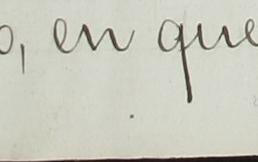 o, en que